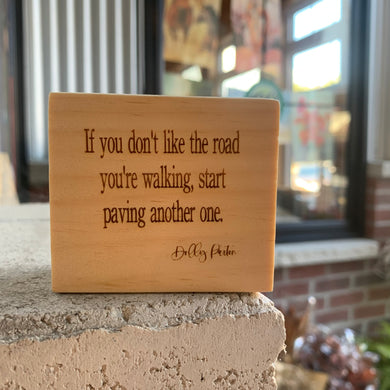 If you don't like the road
you're walking, start
paving another one.
Dolly Parton